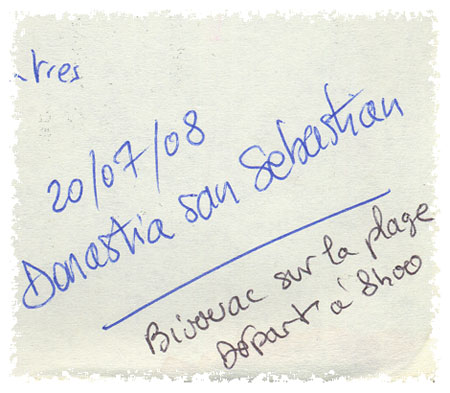 tres
20/07/08
Donastia san Sebastian
Bivouac sur la plage
Départ à 8h00